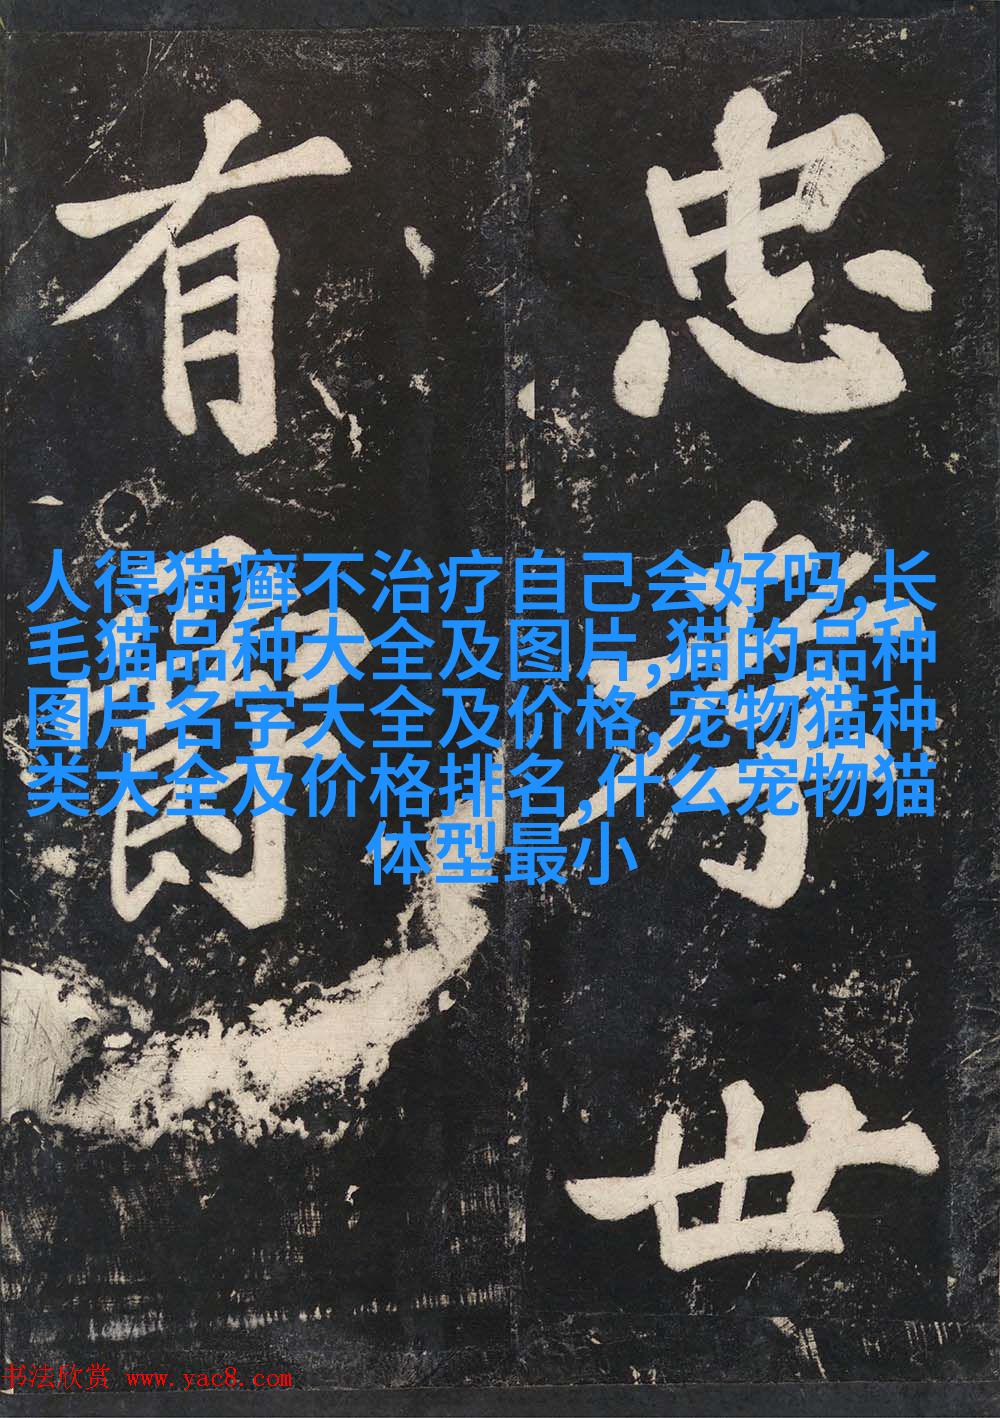 忠孝世
有
人得猫癣不治疗自己会好吗,长
毛猫品种大全及图片,猫的品种
图片名字大全及价格,宠物猫种
类大全及价格排名,什么宠物猫
体型最小
书法欣赏 www.yac8.com